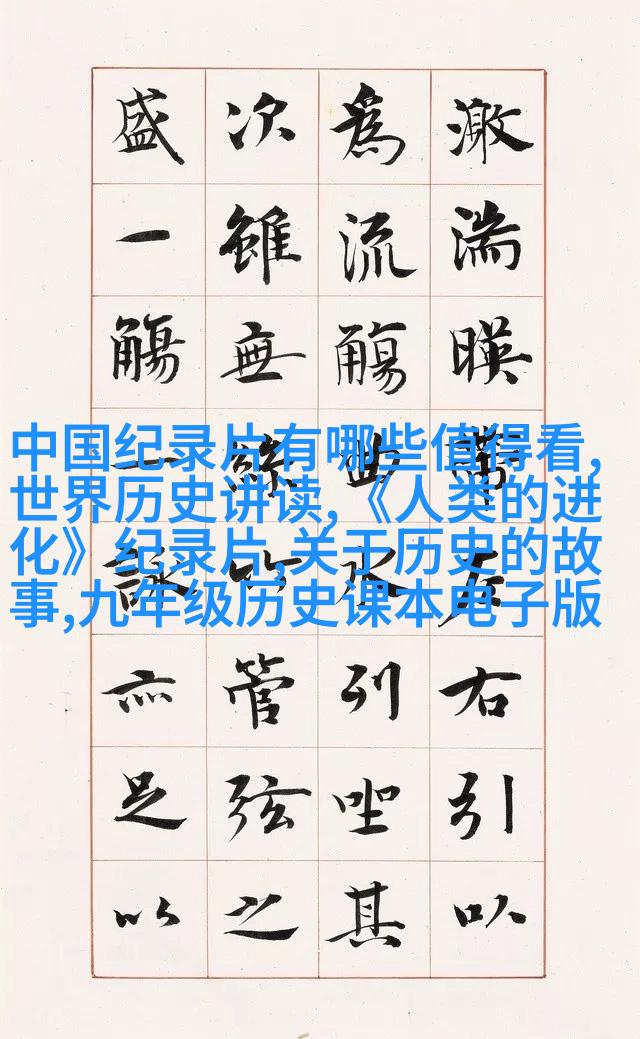 激湍暎帶左右引以
為流觴曲水列坐其
次雖無絲竹管弦之
盛一觴一詠亦足以
中国纪录片有哪些值得看,
世界历史讲读,《人类的进
化》纪录片,关于历史的故
事,九年级历史课本电子版